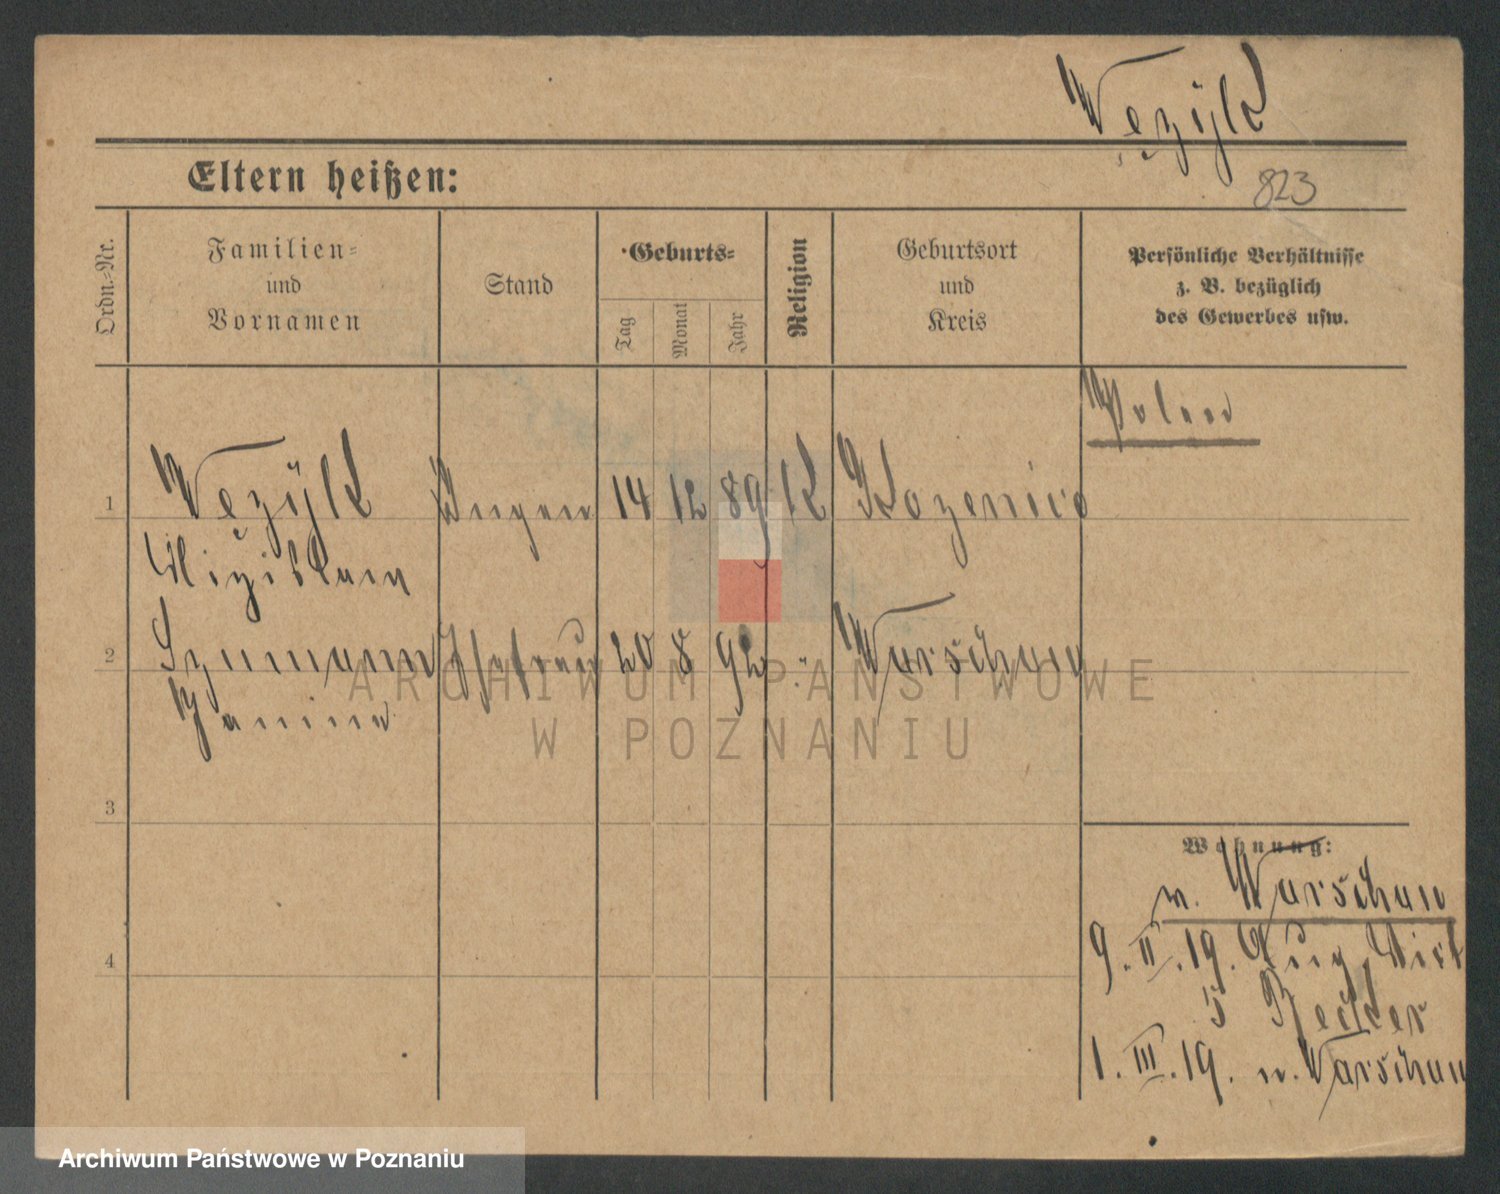 Wezÿk
823
Eltern heißen:
Ordn.-Nr.
Familien-
und
Vornamen
Stand
Geburts-
Tag
Monat
Jahr
Religion
Geburtsort
und
Kreis
Persönliche Verhältnisse
z. B. bezüglich
des Gewerbes usw.
Polen
1 Wezÿk 14 12 89 K Kozenice
2 Szumann Ehefrau 20 8 92 " Warschau
Janina
3
Wohnung:
v. Warschau
9. II. 19. Aug. Wirt
4
5 Becker
1. III. 19. n. Warschau
ARCHIWUM PAŃSTWOWE
W POZNANIU
Archiwum Państwowe w Poznaniu